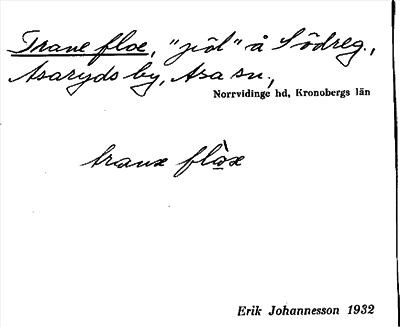 Trane floe, "jöl" å Södreg.,
Asaryds by, Asa sn.,
Norrvidinge hd, Kronobergs län
tranx
Erik Johannesson 1932